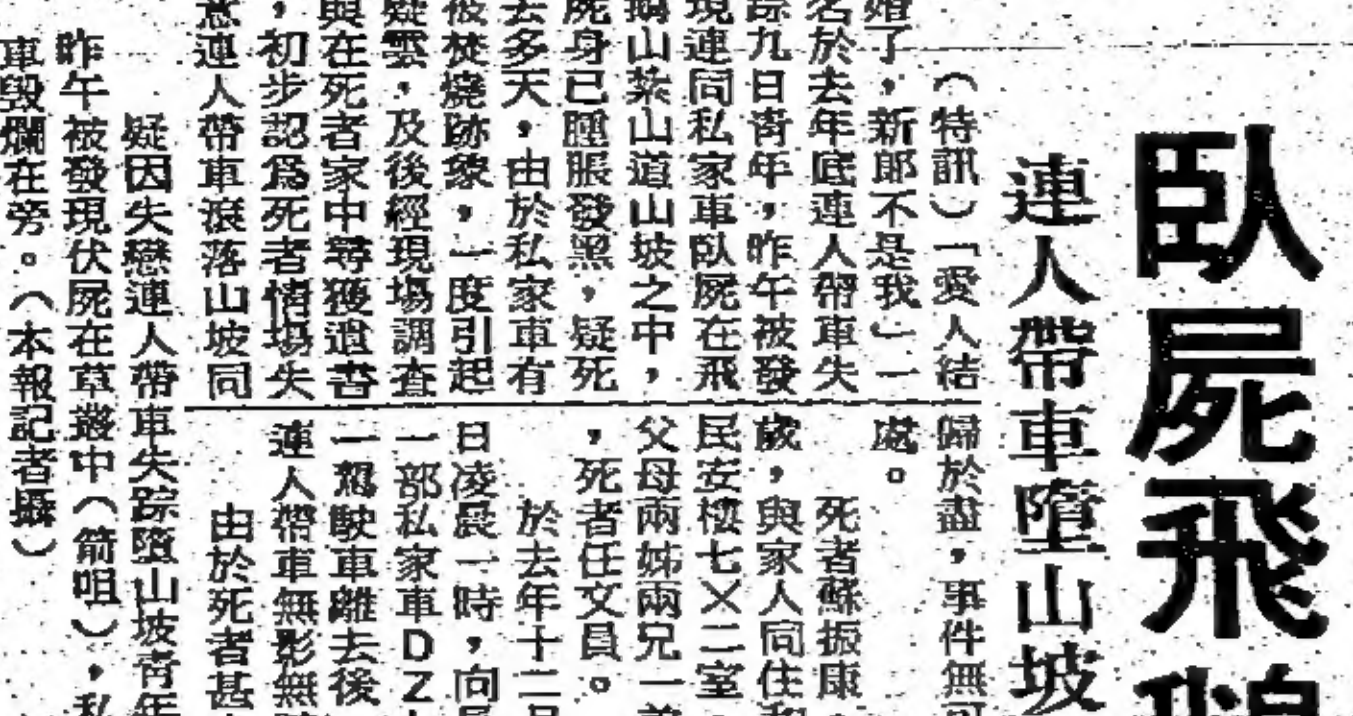 臥屍飛
連人帶車墮山坡
（特訊）「愛人結
婚了，新郎不是我」一
名於去年底連人帶車失
踪九日青年，昨午被發
現連同私家車臥屍在飛
鵝山紮山道山坡之中，
屍身已腫脹發黑，疑死
去多天，由於私家車有
被焚燒跡象，一度引起
疑雲，及後經現場調查
與在死者家中尋獲遺書
，初步認爲死者情場失
意連人帶車滾落山坡同
歸於盡，事件無可
處。
死者蘇振康，
歲，與家人同住
民安樓七×二室，
父母兩姊兩兄一
，死者任文員。
於去年十二月
日凌晨一時，向
一部私家車DZ
一怒駛車離去後
連人帶車無影無
由於死者甚
疑因失戀連人帶車失踪墮山坡青年
昨午被發現伏屍在草叢中（箭咀），私
車毀爛在旁。（本報記者攝）